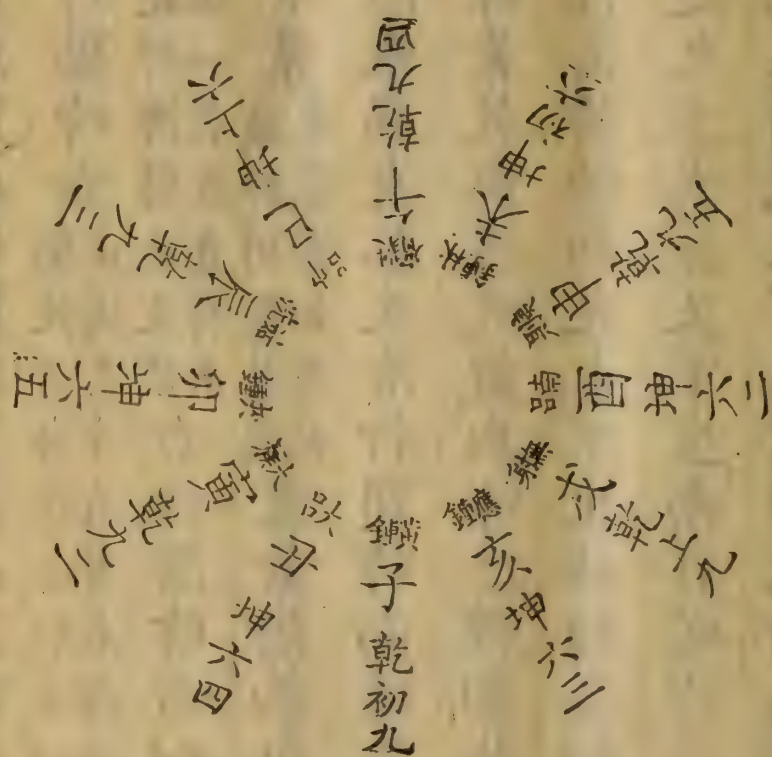 黃鍾子乾初九
大呂丑坤六四
太蔟寅乾九二
夾鍾卯坤六五
姑洗辰乾九三
中呂巳坤上六
蕤賓午乾九四
林鍾未坤初六
夷則申乾九五
南呂酉坤六二
無射戌乾上九
應鍾亥坤六三